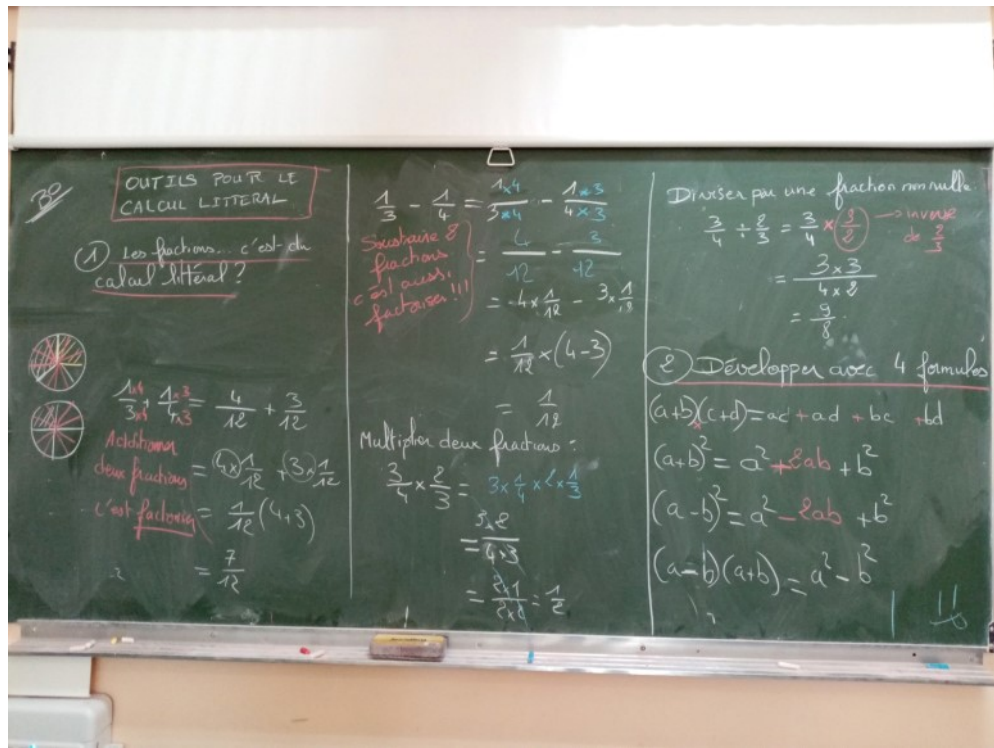 OUTILS POUR LE
CALCUL LITTERAL
① Les fractions... c'est du
calcul littéral ?
1×4/3×4 + 1×3/4×3 = 4/12 + 3/12
Additionner
deux fractions = 4×1/12 + 3×1/12
c'est factoriser = 1/12(4+3)
= 7/12
1/3 - 1/4 = 1×4/3×4 - 1×3/4×3
Soustraire 2
fractions
c'est aussi
factoriser !!!
= 4/12 - 3/12
= 4×1/12 - 3×1/12
= 1/12×(4-3)
= 1/12
Multiplier deux fractions :
3/4 × 2/3 = 3×1/4×2×1/3
= 3×2/4×3
= 2×1/2×2 = 1/2
Diviser par une fraction non nulle
3/4 ÷ 2/3 = 3/4 × 3/2 → inverse
de 2/3
= 3×3/4×2
= 9/8.
② Développer avec 4 formules
(a+b)(c+d) = ac + ad + bc + bd
(a+b)² = a² + 2ab + b²
(a-b)² = a² - 2ab + b²
(a-b)(a+b) = a² - b²